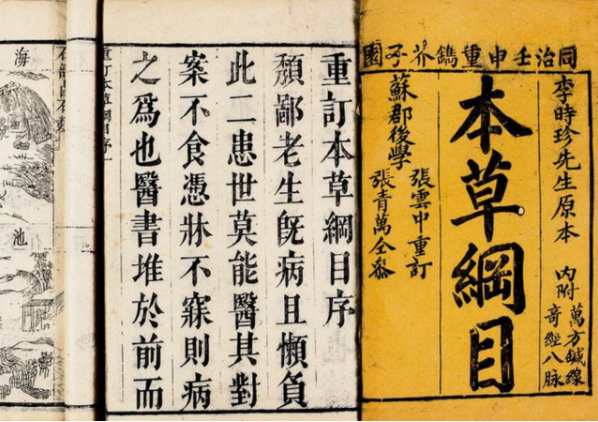 同治壬申重鐫芥子園
李時珍先生原本
內附
萬方鍼線
奇經八脉
本草綱目
張雲中重訂
蘇郡後學
張青萬仝參
重訂本草綱目序
頽鄙老生旣病且懶負
此二患世莫能醫其對
案不食憑牀不寐則病
之爲也醫書堆於前而
重訂本草綱目序
海
池